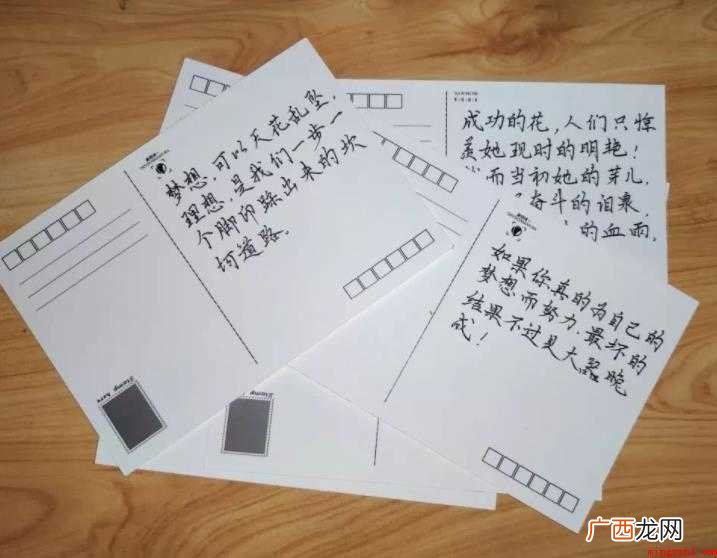 梦想,可以天花乱坠,
理想,是我们一步一
个脚印踩出来的坎
坷道路.
Stamp here
成功的花,人们只惊
羡她现时的明艳!
而当初她的芽儿,
奋斗的泪泉,
的血雨.
如果你真的为自己的
梦想而努力,最坏的
结果不过是大器晚
成!
Stamp here
广西龙网